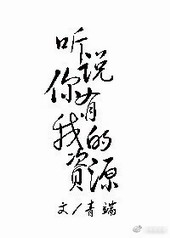 听说
你有
我的
資源
文/青端